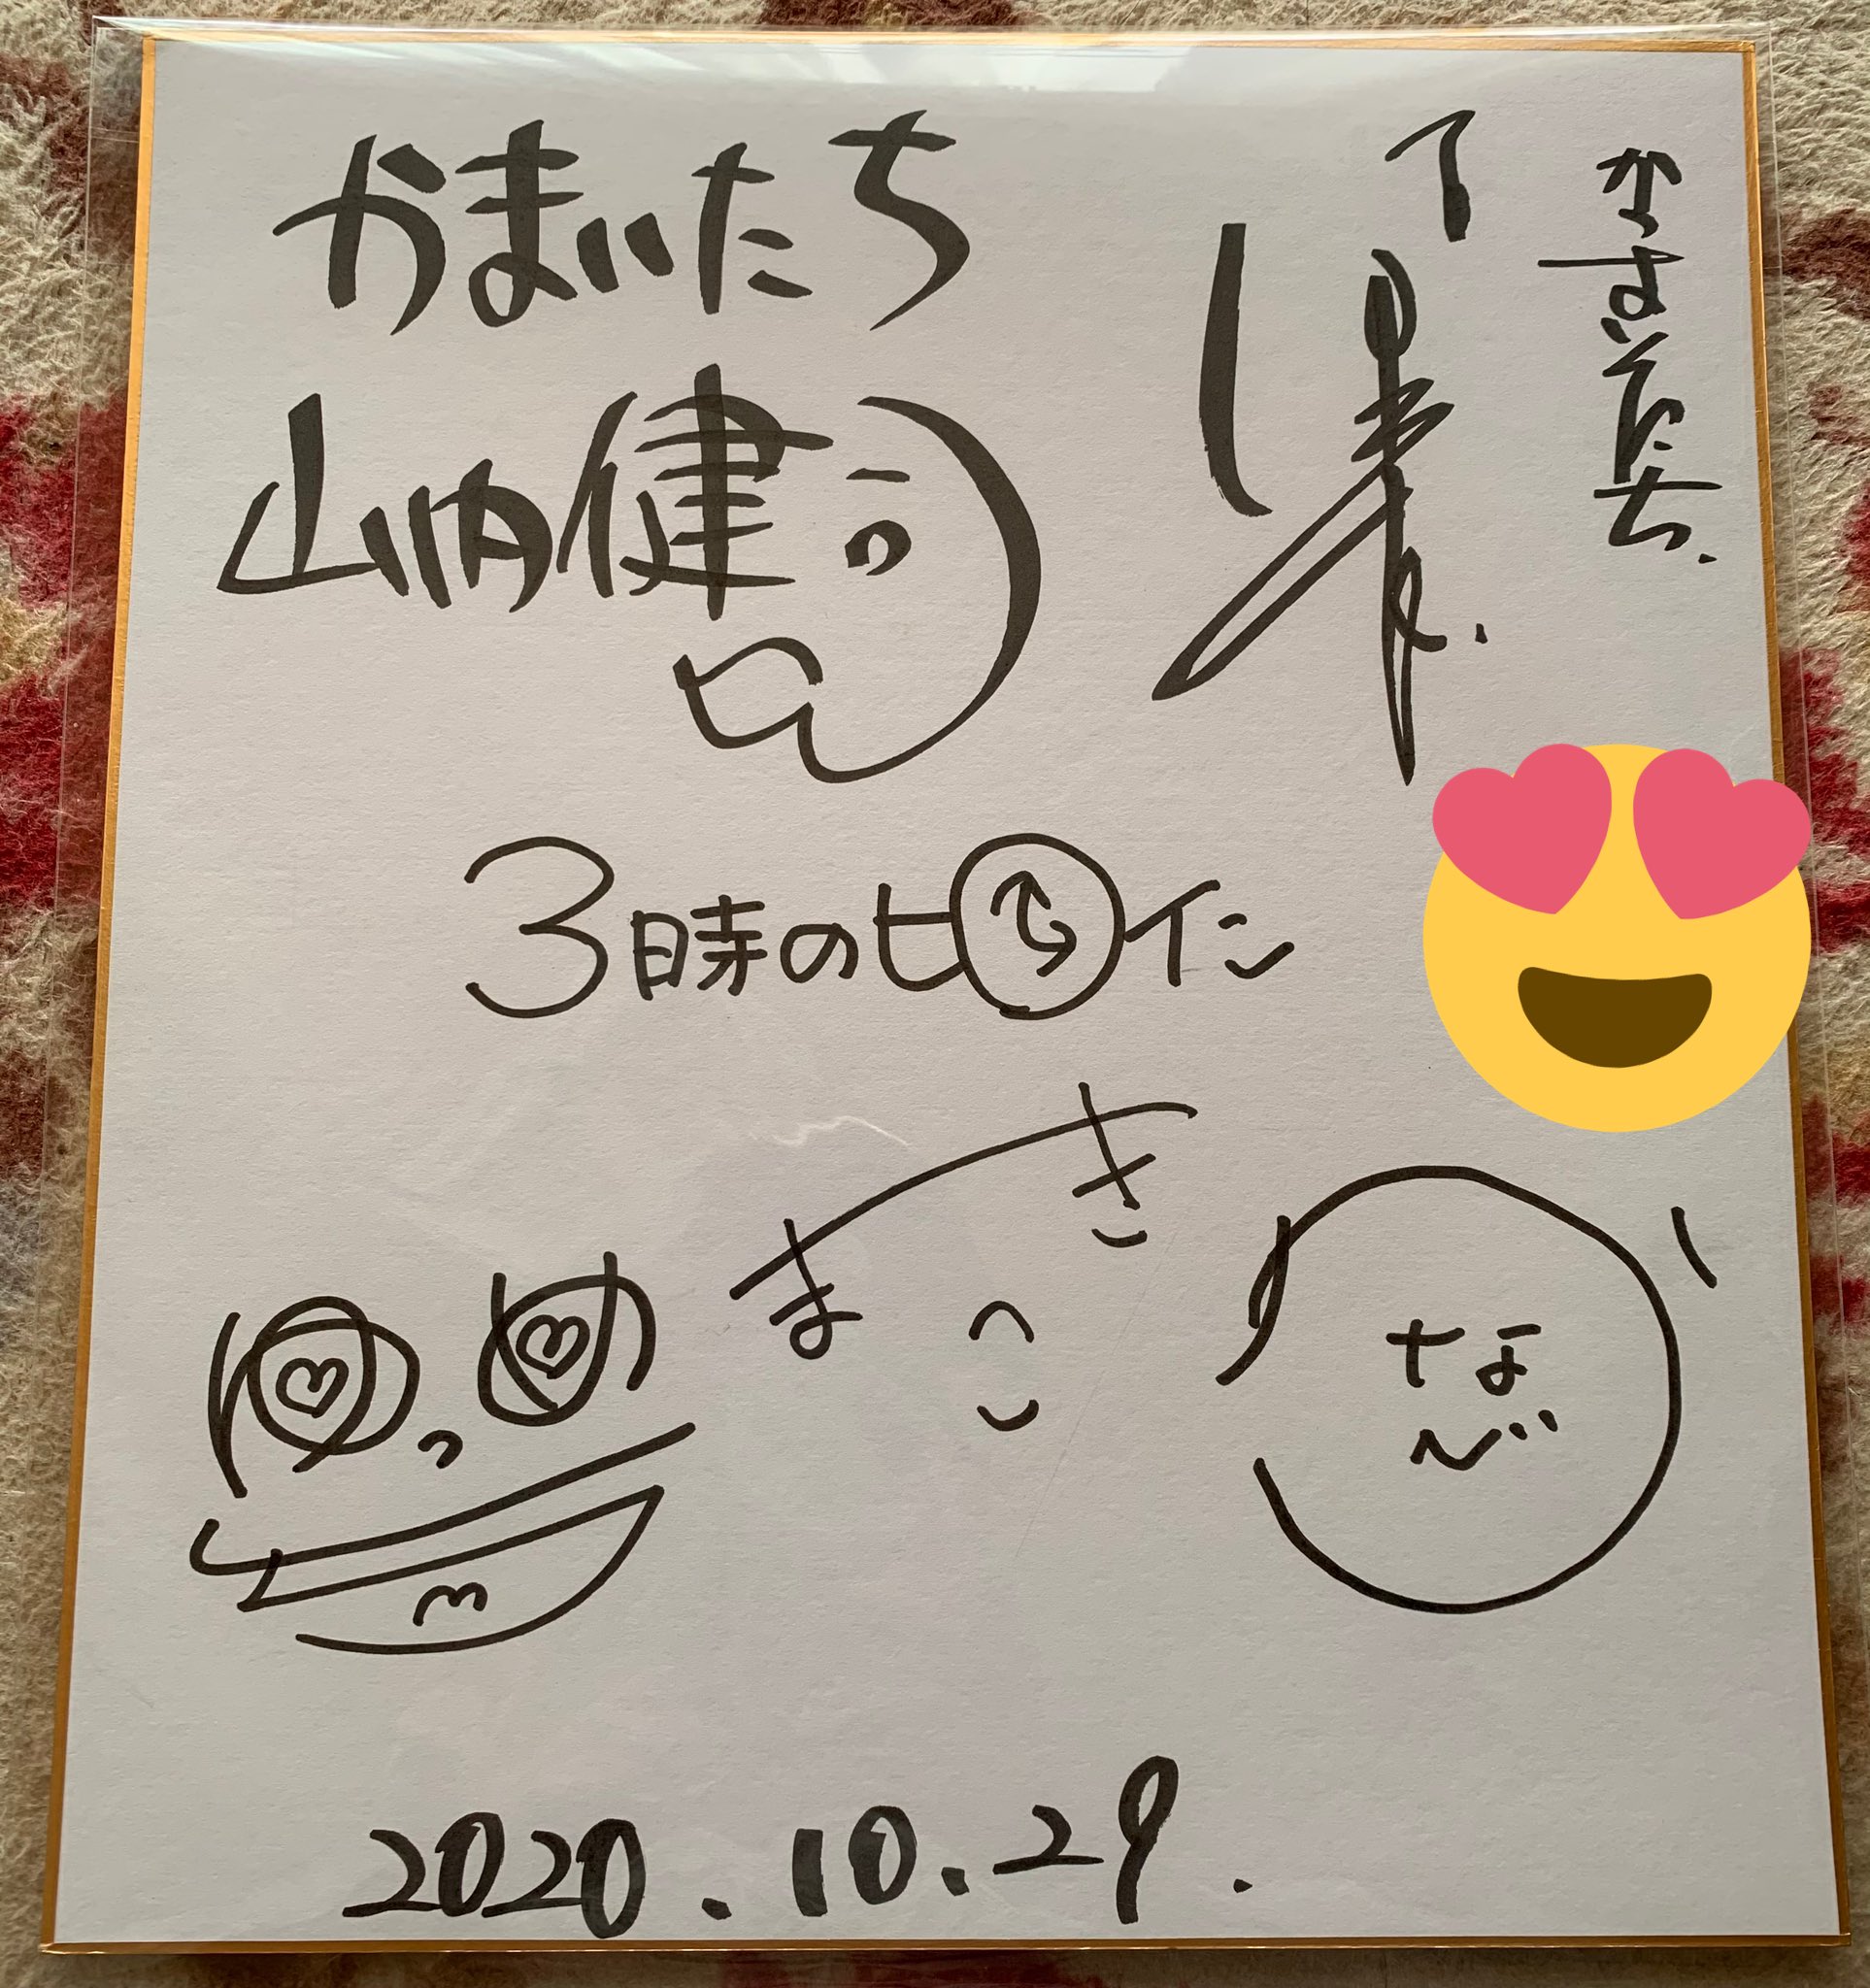 かまいたち
山内健司
かまいたち.
3時のヒロイン
ゆっめ
まき
かなで
2020.10.29.